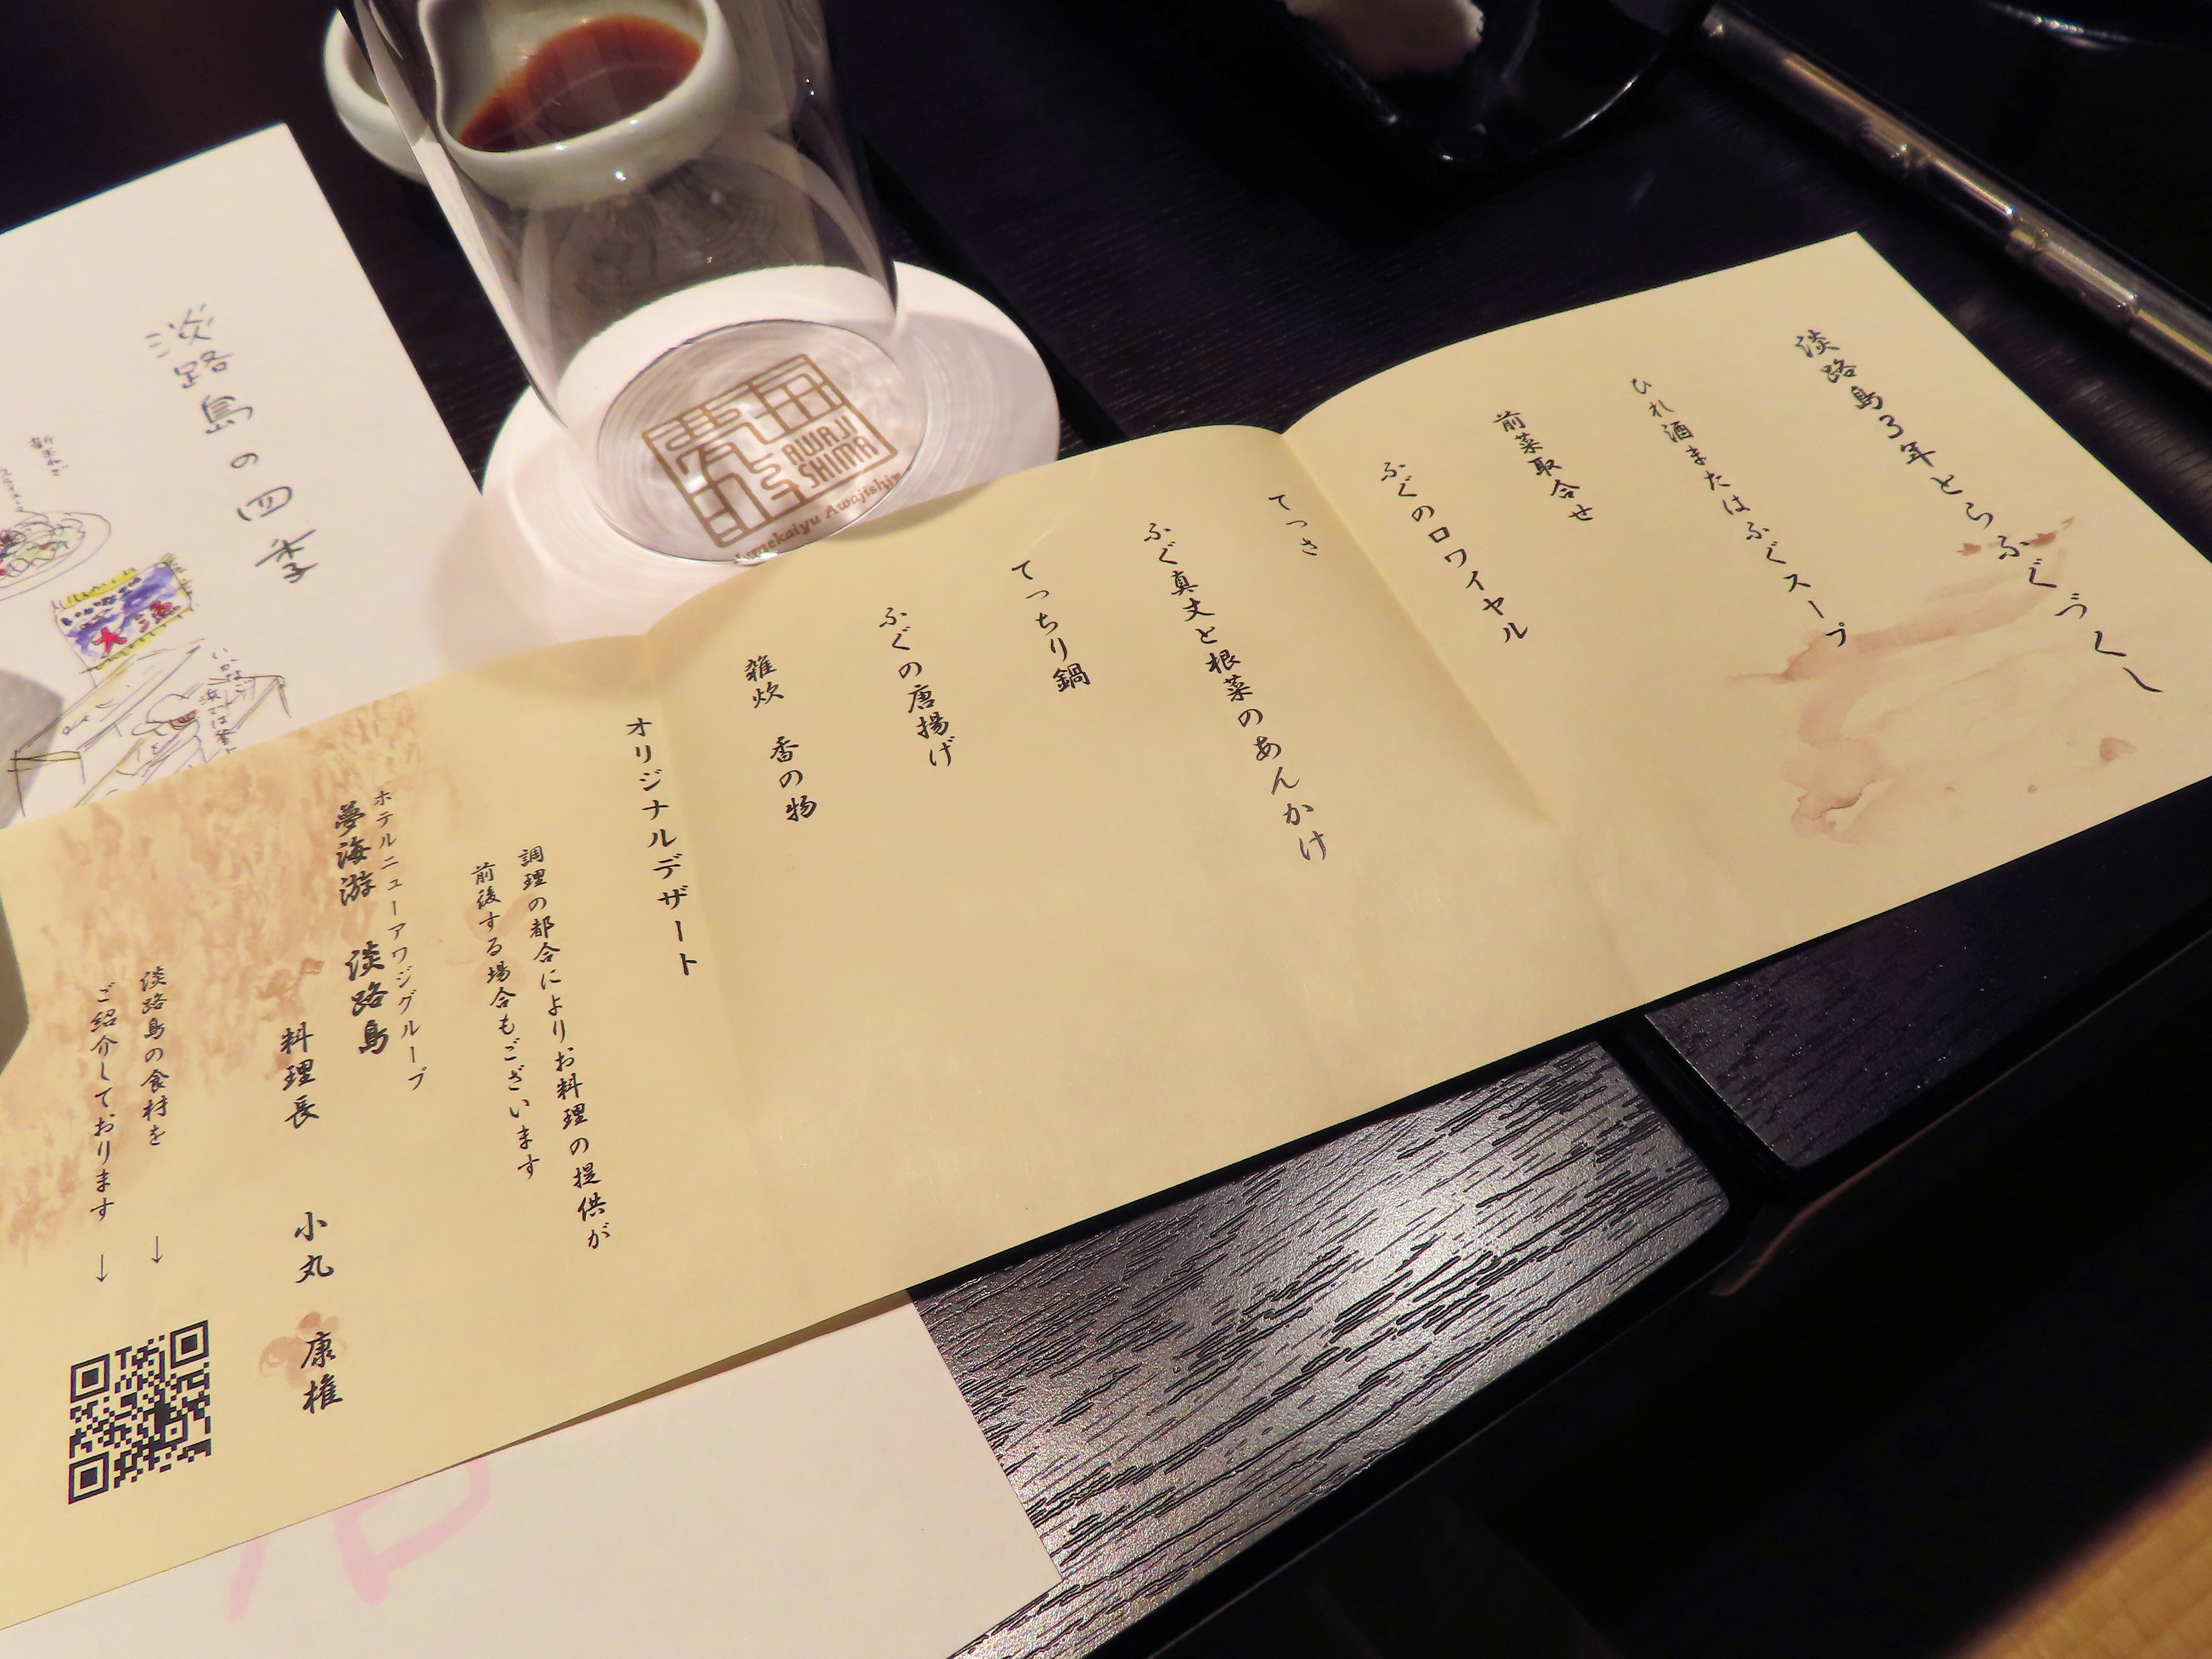 淡路島3年とらふぐづくし
ひれ酒またはふぐスープ
前菜取合せ
ふぐのロワイヤル
てっさ
ふぐ真丈と根菜のあんかけ
てっちり鍋
ふぐの唐揚げ
雑炊　香の物
オリジナルデザート
調理の都合によりお料理の提供が
前後する場合もございます
ホテルニューアワジグループ
夢海游　淡路島
料理長　小丸　康権
淡路島の食材を　↓
ご紹介しております　↓
淡路島の四季
AWAJI
SHIMA
Yumekaiyu Awajishima